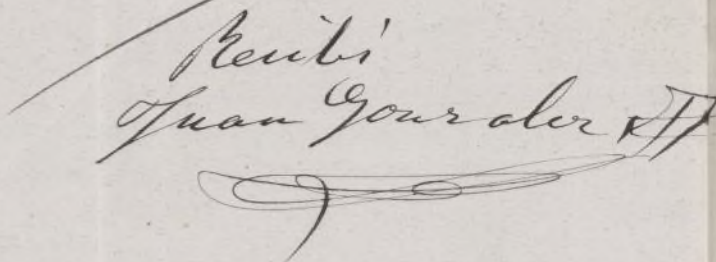 Recibí
Juan Gonzalez